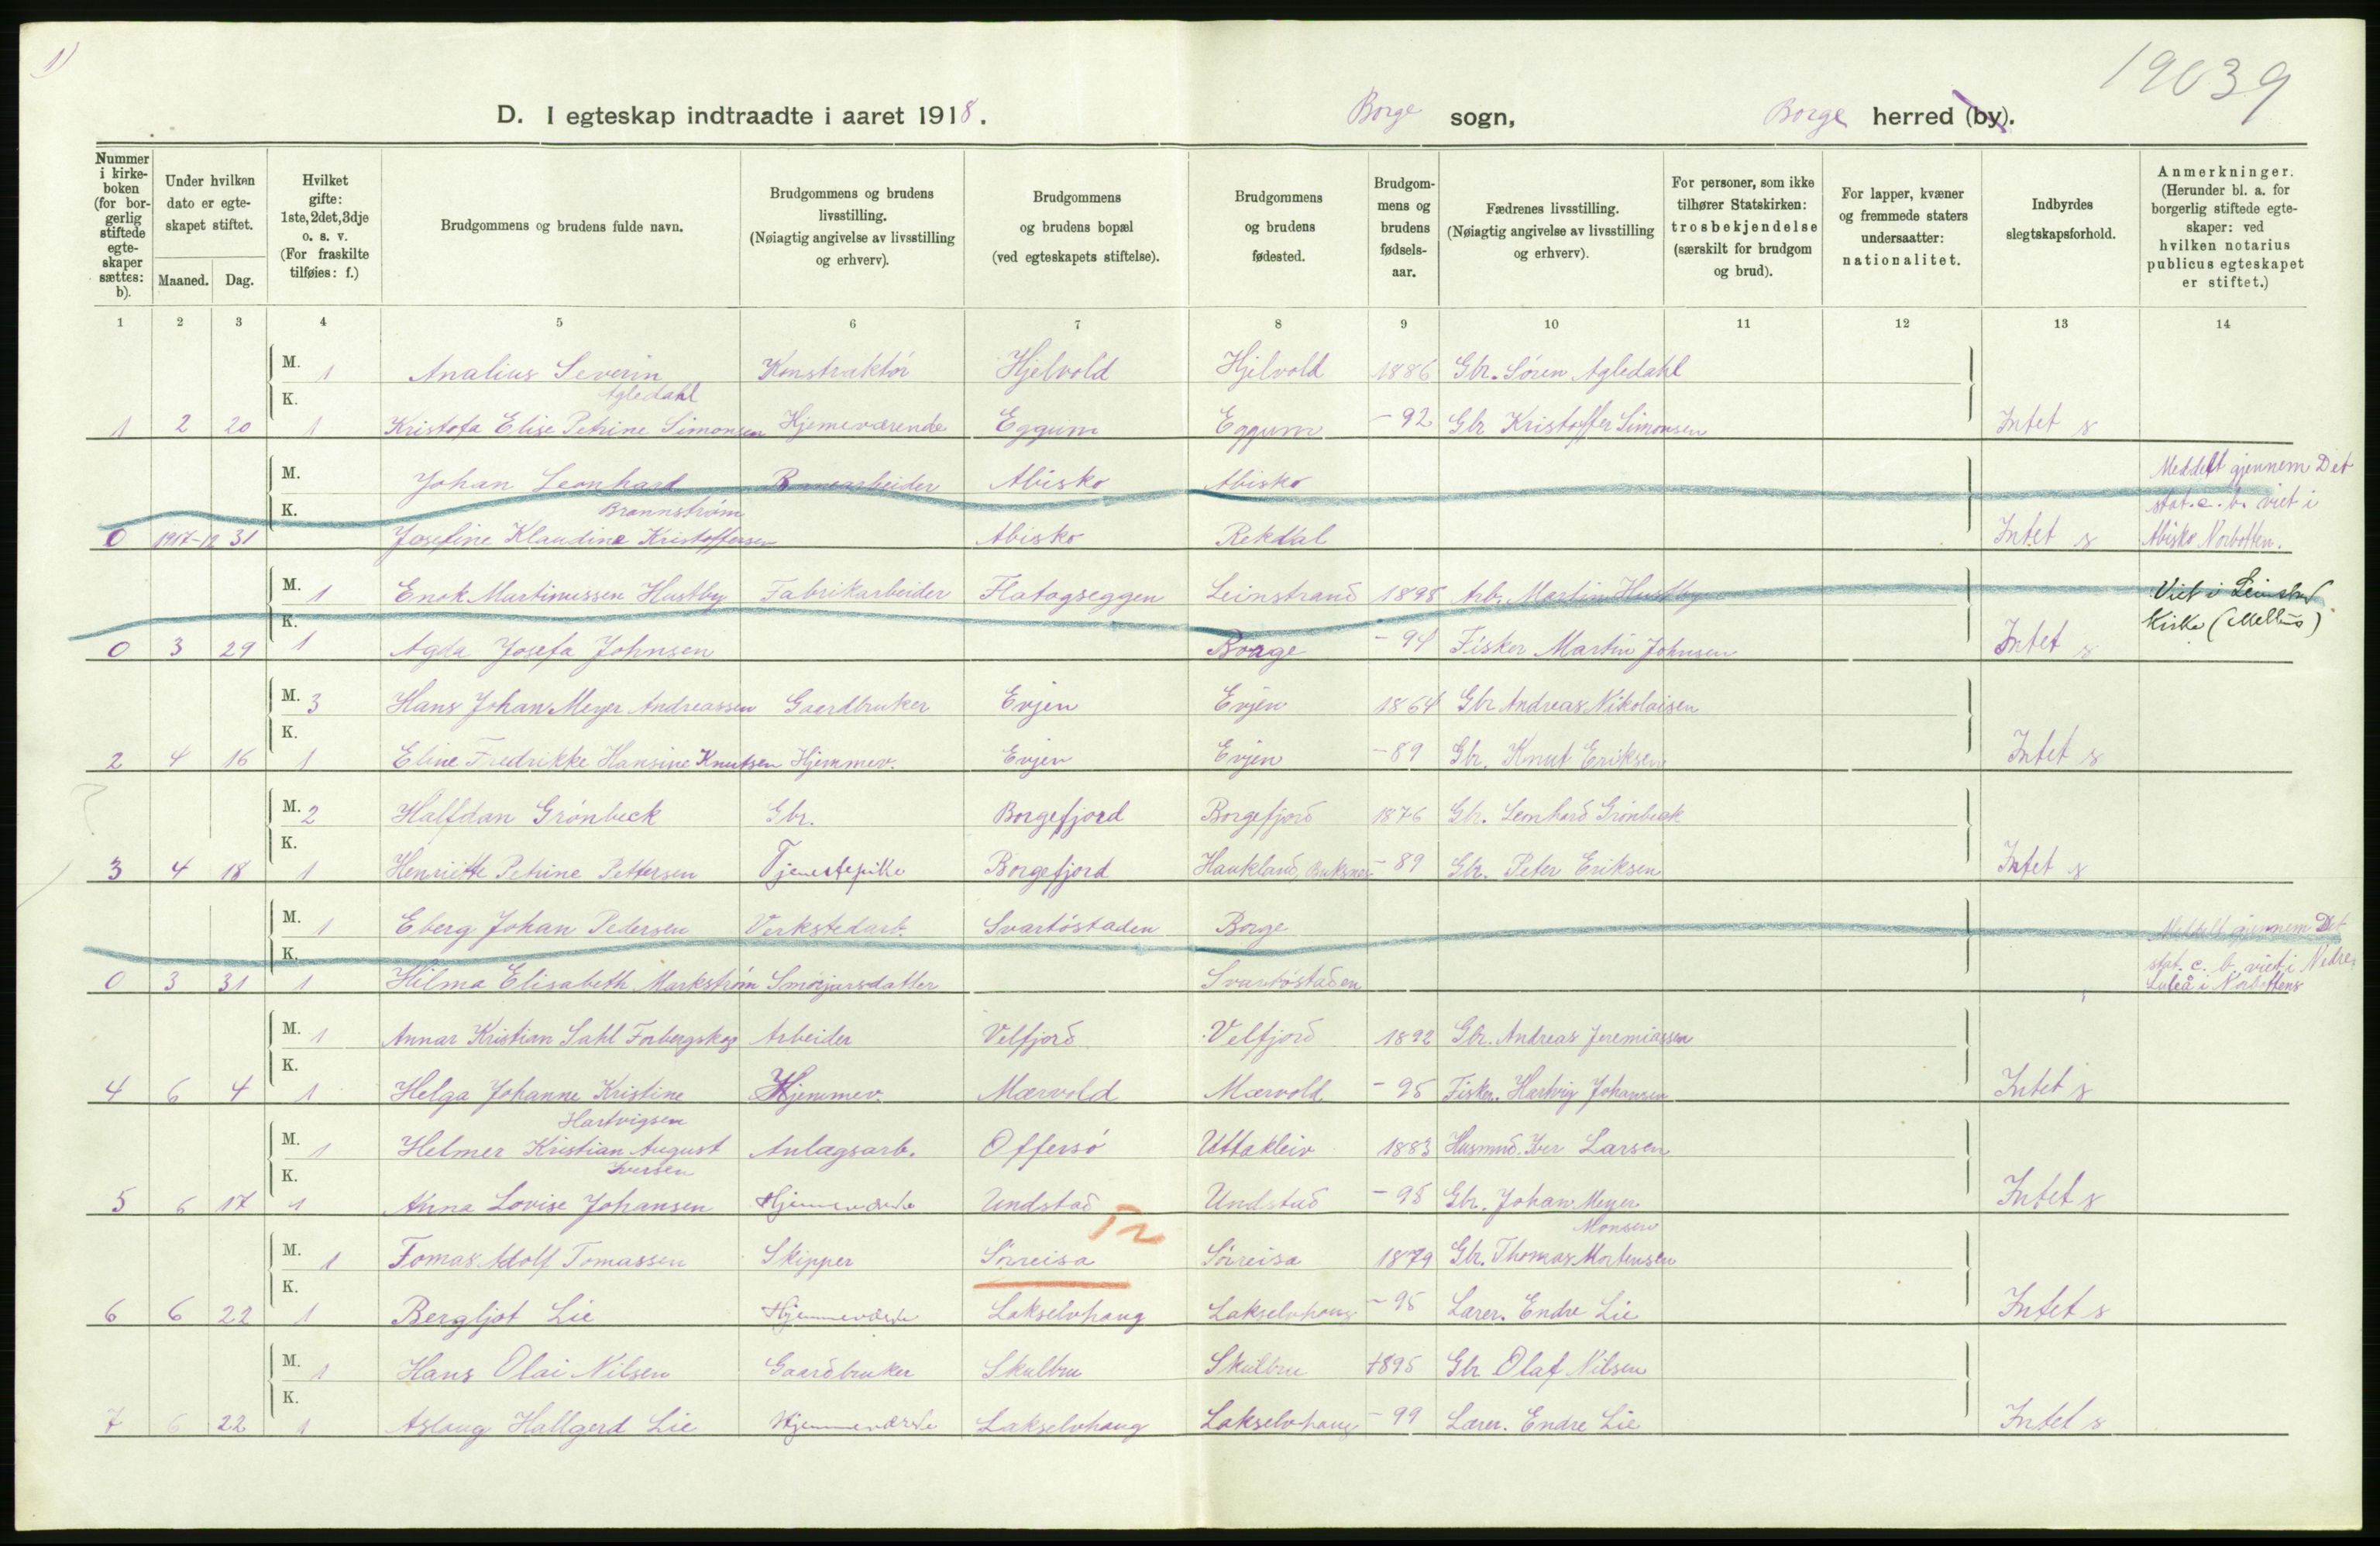 1)
19039
D. I egteskap indtraadte i aaret 1918. Borge sogn, Borge herred (by).
Nummer i kirke-boken (for bor-gerlig stiftede egte-skaper sættes: b).
Under hvilken dato er egte-skapet stiftet.
Maaned. Dag.
Hvilket gifte: 1ste, 2det, 3dje o. s. v. (For fraskilte tilføies: f.)
Brudgommens og brudens fulde navn.
Brudgommens og brudens livsstilling. (Nøiagtig angivelse av livsstilling og erhverv).
Brudgommens og brudens bopæl (ved egteskapets stiftelse).
Brudgommens og brudens fødested.
Brudgom-mens og brudens fødsels-aar.
Fædrenes livsstilling. (Nøiagtig angivelse av livsstilling og erhverv).
For personer, som ikke tilhører Statskirken: trosbekjendelse (særskilt for brudgom og brud).
For lapper, kvæner og fremmede staters undersaatter: nationalitet.
Indbyrdes slegtskapsforhold.
Anmerkninger. (Herunder bl. a. for borgerlig stiftede egte-skaper: ved hvilken notarius publicus egteskapet er stiftet.)
1 2 3 4 5 6 7 8 9 10 11 12 13 14
M. 1 Analius Severin Konstruktør Hjelvold Hjelvold 1886 Gbr. Søren Agledahl
K. Agledahl
1 2 20 1 Kristofa Elise Petrine Simonsen Hjemeværende Eggum Eggum - 92 Gbr Kristoffer Simonsen Intet s
M. Johan Leonhard Banearbeider Abisko Abisko Meddelt gjennem Det
K. Brannstrøm stat. c. b. viet i
0 1917-12 31 Josefine Klaudine Kristoffersen Abisko Rekdal Intet s Abisko Norbotten.
M. 1 Enok Martinussen Hustby Fabrikarbeider Flatogseggen Leinstrand 1898 Arb. Martin Hustby Viet i Leinstr
K. Kirke (Melhus)
0 3 29 1 Agda Josefa Johnsen Borge - 94 Fisker Martin Johnsen Intet s
M. 3 Hans Johan Meyer Andreassen Gaardbruker Evjen Evjen 1864 Gbr Andreas Nikolaisen
K.
2 4 16 1 Eline Fredrikke Hansine Knutsen Hjemmev. Evjen Evjen - 89 Gbr. Knut Eriksen Intet s
M. 2 Halfdan Grønbeck Gbr. Borgefjord Borgefjord 1876 Gbr. Leonhard Grønbeck
K.
3 4 18 1 Henriette Petrine Pettersen Tjenestepike Borgefjord Haukland, Buksnes - 89 Gbr. Peter Eriksen Intet s
M. 1 Eberg Johan Pedersen Verkstedarb. Svartøstaden Borge Meddelt gjennem Det
K. stat. c. b. viet i Nedre
0 3 31 1 Hilma Elisabeth Markstrøm Smörjarsdatter Svartøstaden Luleå i Norbottens
M. 1 Annar Kristian Sahl Forbergskog Arbeider Velfjord Velfjord 1892 Gbr. Andreas Jeremiassen
K.
4 6 4 1 Helga Johanne Kristine Hjemmev. Mærvold Mærvold - 95 Fisker. Hartvig Johansen Intet s
Hartvigsen
M. 1 Helmer Kristian August Anlægsarb. Offersø Uttakleiv 1883 Husmnd. Iver Larsen
K. Iversen
5 6 17 1 Anna Lovise Johansen Hjemmeværende Undstad Undstad - 98 Gbr. Johan Meyer Intet s
Tr Monsen
M. 1 Tomas Adolf Tomassen Skipper Sørreisa Sørreisa 1879 Gbr. Thomas Mortensen
K.
6 6 22 1 Bergljot Lie Hjemmeværende Lakselvhaug Lakselvhaug - 95 Lærer. Endre Lie Intet s
M. 1 Hans Olai Nilsen Gaardbruker Skulbru Skulbru 1895 Gbr Olaf Nilsen
K.
7 6 22 1 Aslaug Hallgerd Lie Hjemmeværende Lakselvhaug Lakselvhaug - 99 Lærer. Endre Lie Intet s